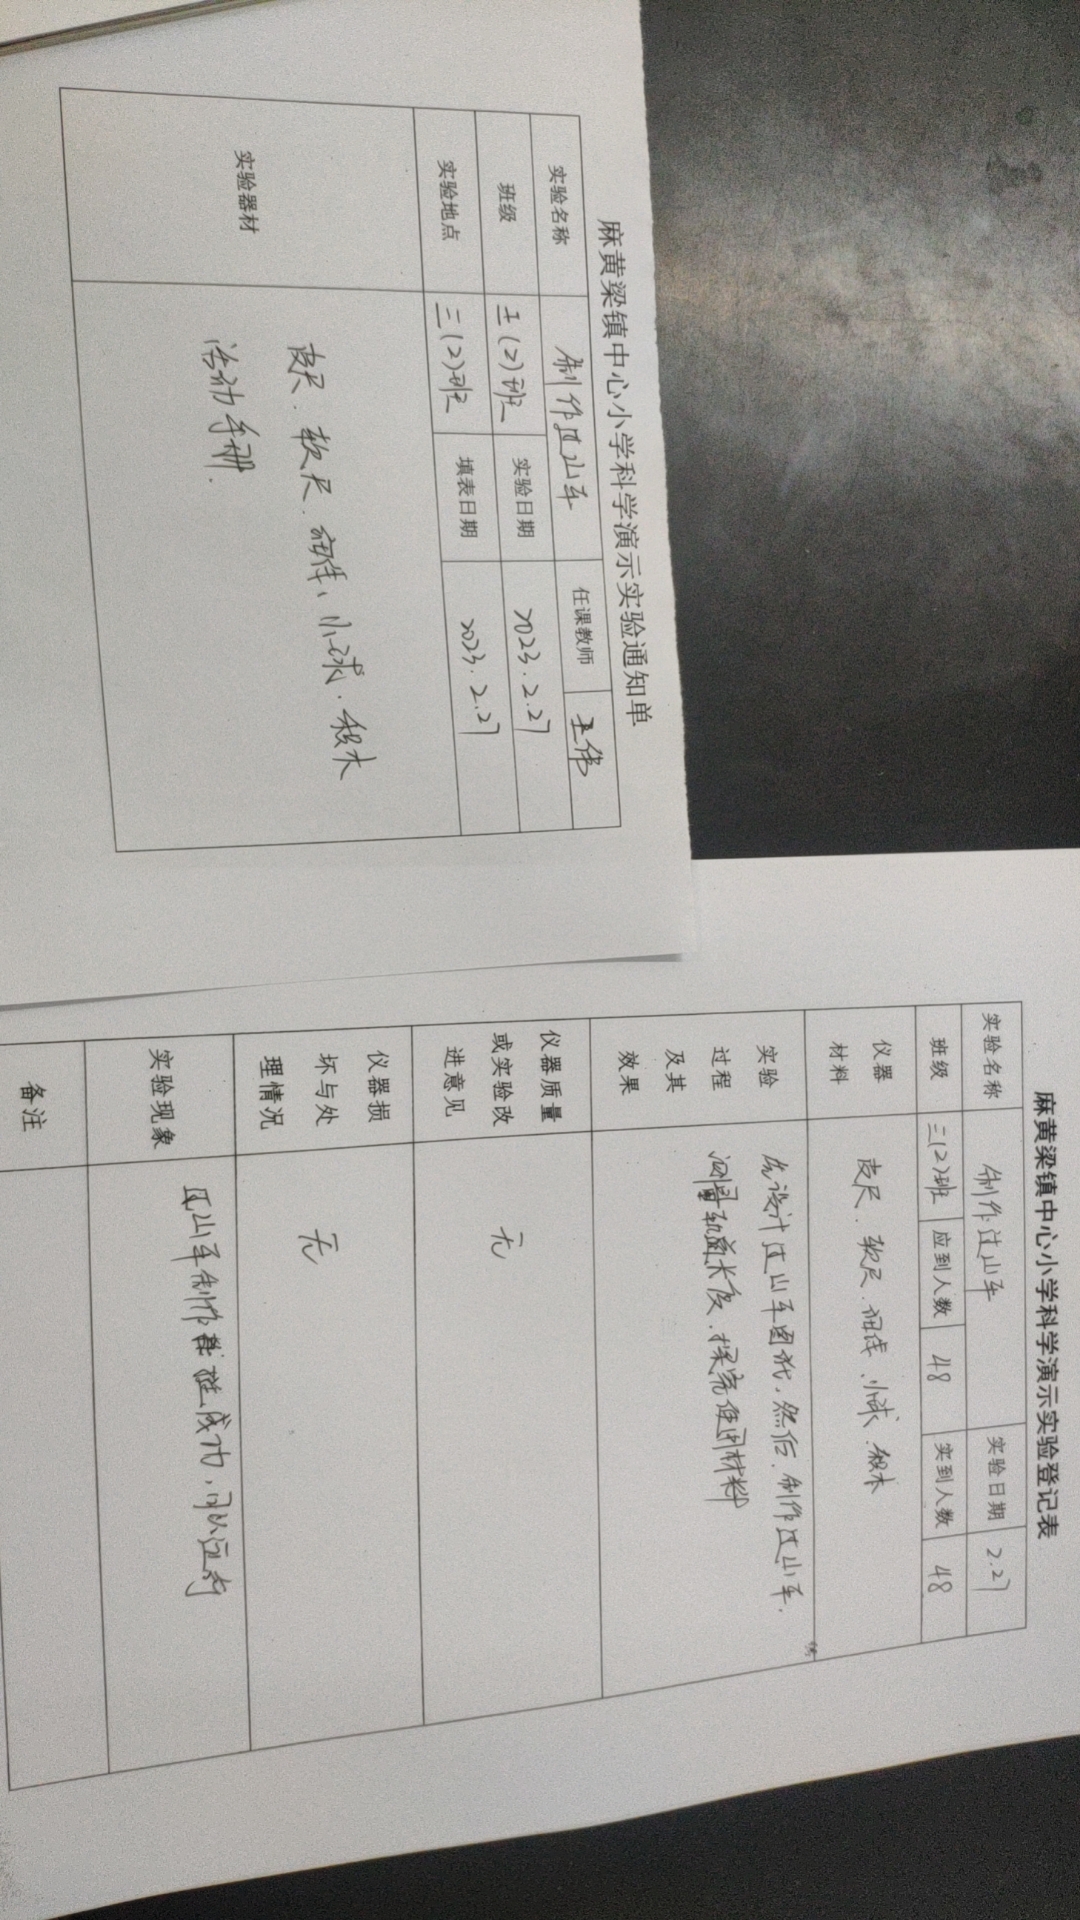 麻黄梁镇中心小学科学演示实验通知单
实验名称 制作过山车 任课教师 王伟
班级 三(2)班 实验日期 2023.2.27
实验地点 三(2)班 填表日期 2023.2.27
实验器材
皮尺.软尺. 小球.积木
活动手册.
麻黄梁镇中心小学科学演示实验登记表
实验名称 制作过山车 实验日期 2.27
班级 三(2)班 应到人数 48 实到人数 48
仪器
材料
皮尺.软尺. 小球.积木
实验
过程
及其
效果
先设计过山车图纸,然后.制作过山车.
测量轨道长度.探究使用材料
仪器质量
或实验改
进意见
无
仪器损
坏与处
理情况
无
实验现象
过山车制作 成功,可以运动
备注